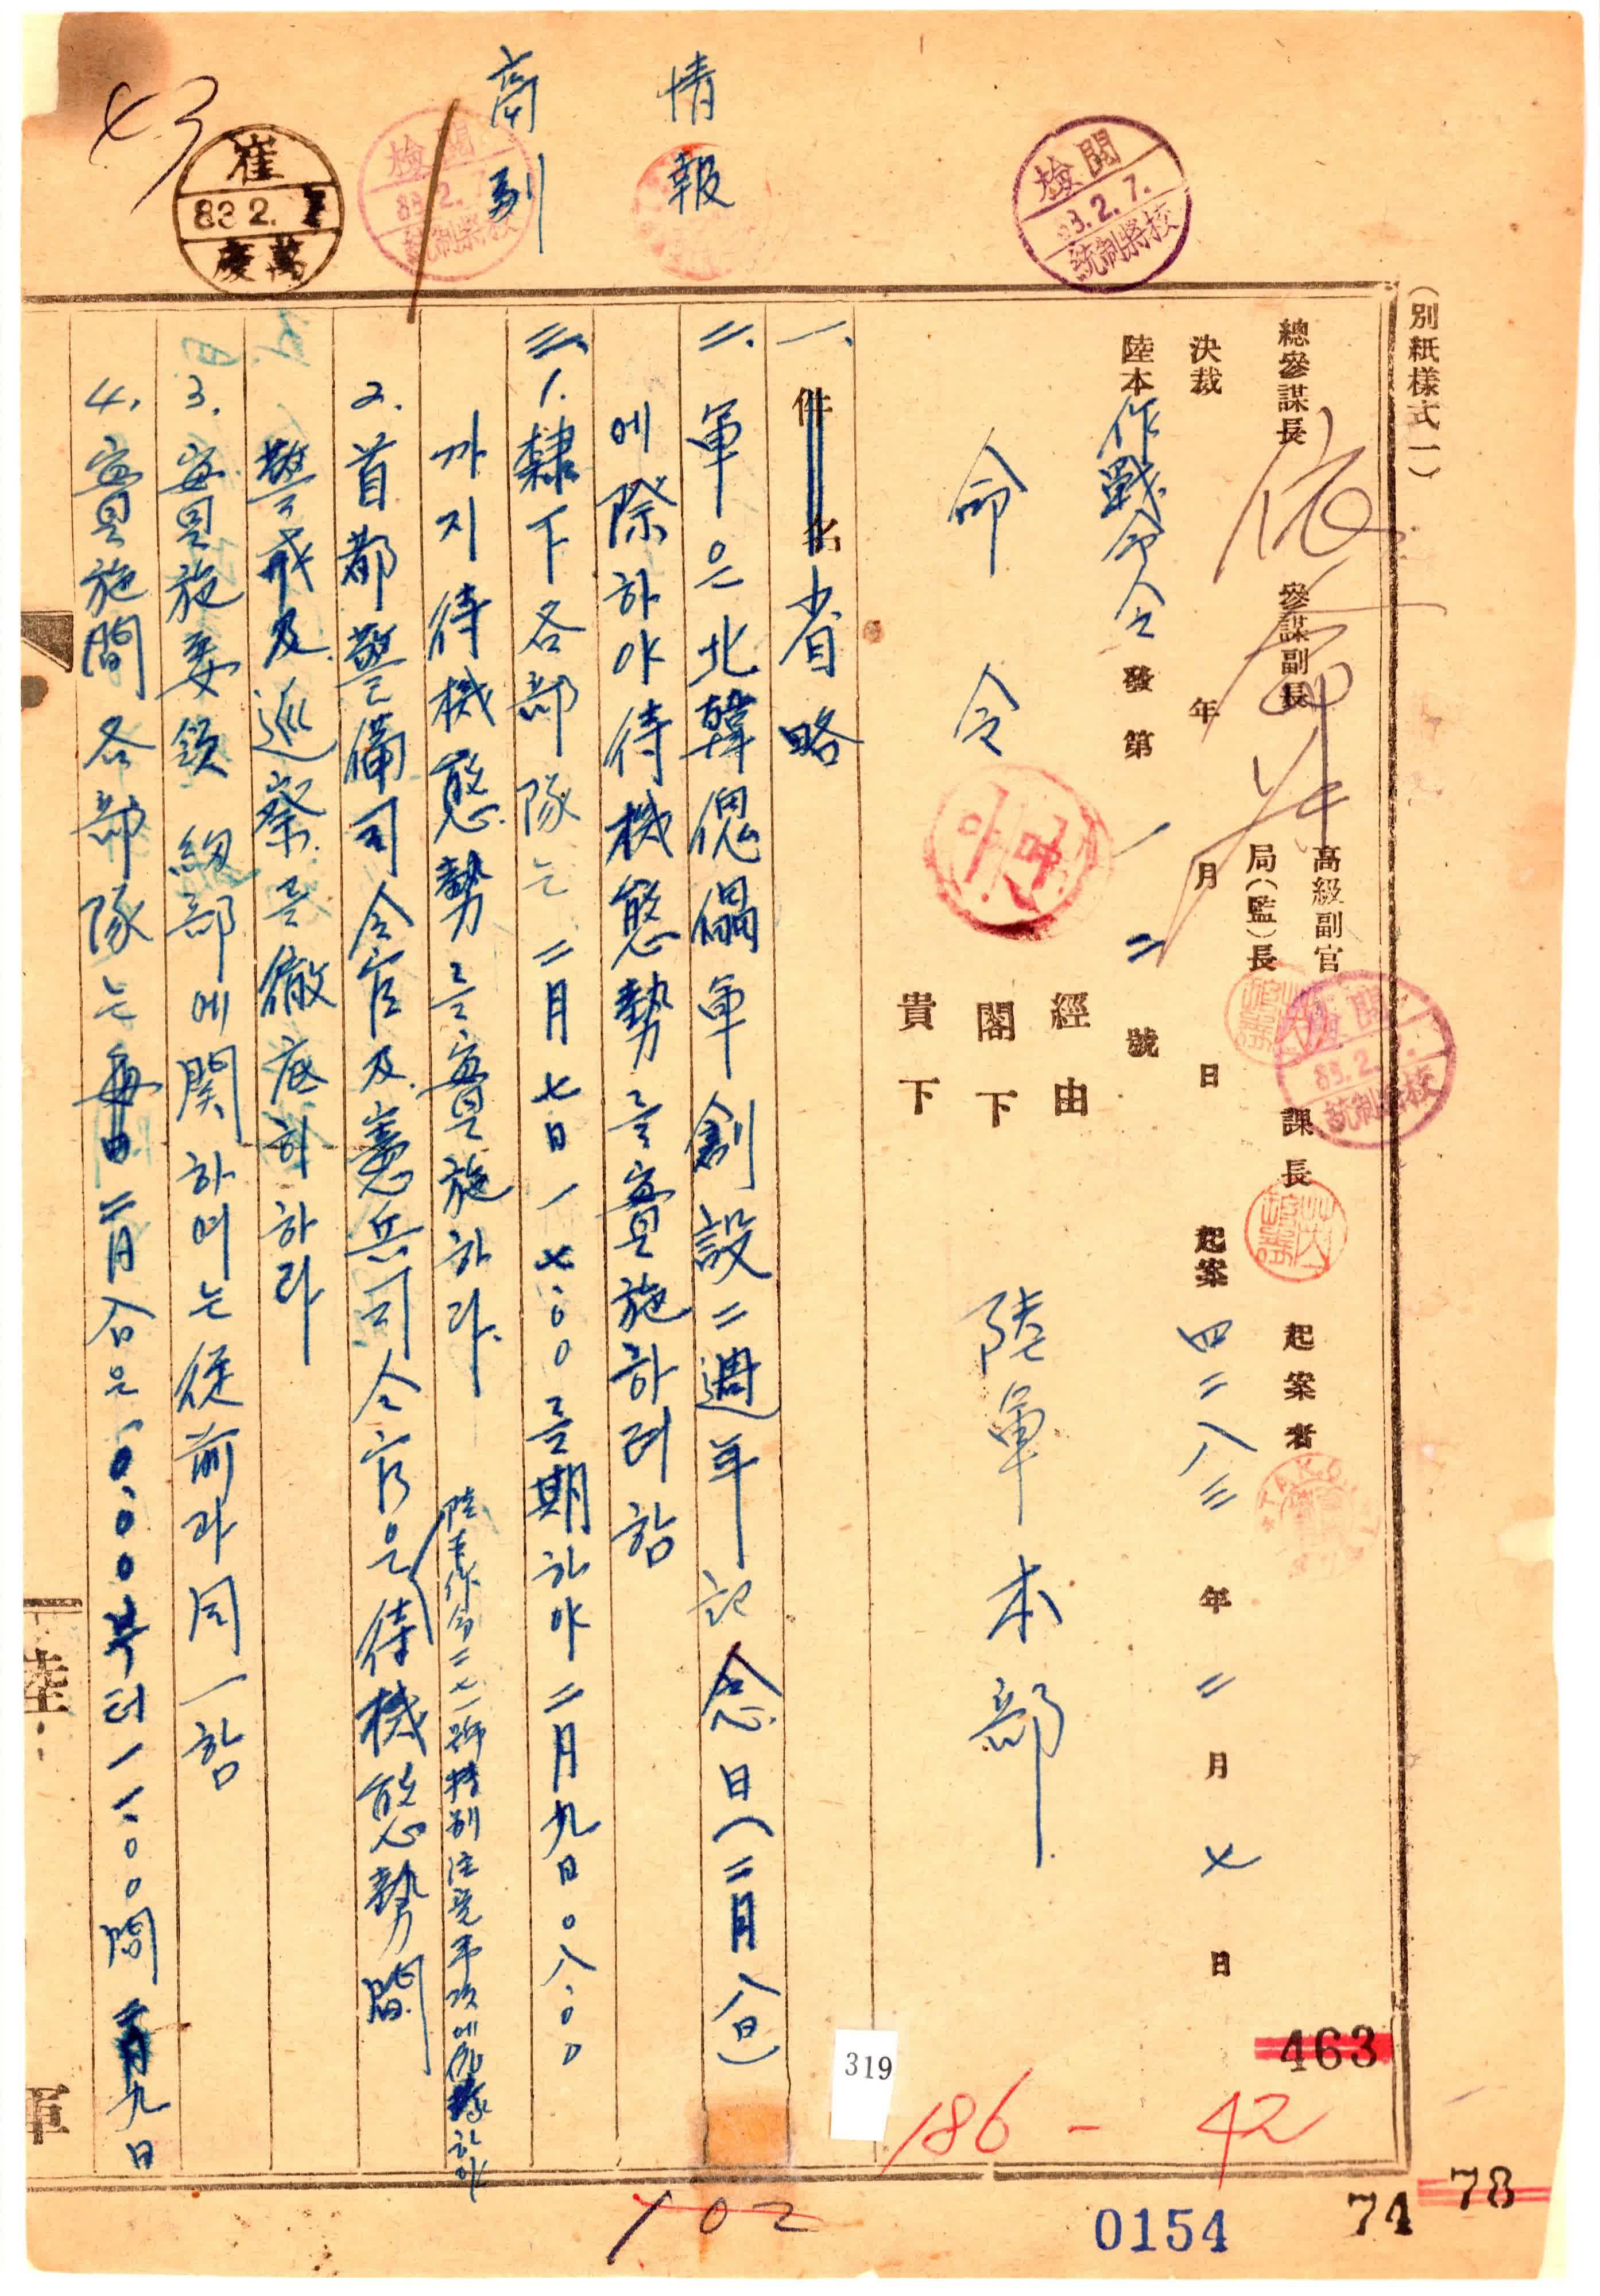 (別紙樣式一)
總參謀長 參謀副長 高級副官 局(監)長 課長 起案者
決裁 年 月 日 起案 四二八三 年 二 月 七 日
陸本 作戰命令 發第 一 二 號
經由
命令 閣下 陸軍本部
貴下
情報
高副
檢閱
83.2.7.
統制將校
檢閱
83.2.7.
統制將校
檢閱
83.2.
統制將校
崔
83 2.
萬慶
43
一、件名 省略
二、軍은 北韓傀儡軍 創設 二週年 記念日(二月八日)
에 際하야 待機態勢를 實施하려 함
三、1. 隸下各部隊는 二月七日 一七:00를 期하야 二月九日 0八:00
까지 待機態勢를 實施하라.
陸本作命二七一號 特別注意事項에 依據하야
2. 首都警備司令官 及 憲兵司令官은 待機態勢間
警戒 及 巡察을 徹底히 하라
3. 實施要領 細部에 関하여는 從前과 同一함
4. 實施間 各部隊는 每日 二月八日은 0:00부터 一一:00間 二月九日
陸
軍
319
463
186-42
102
0154
74
78